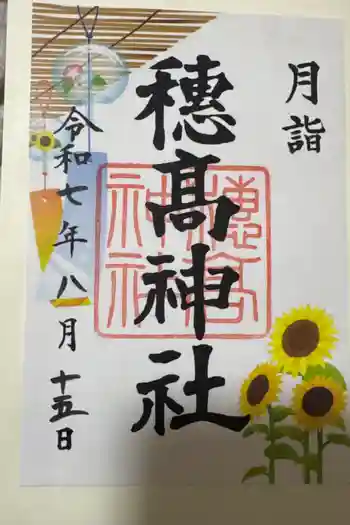 月詣
穂髙神社
穂高
神社
令和七年八月十五日